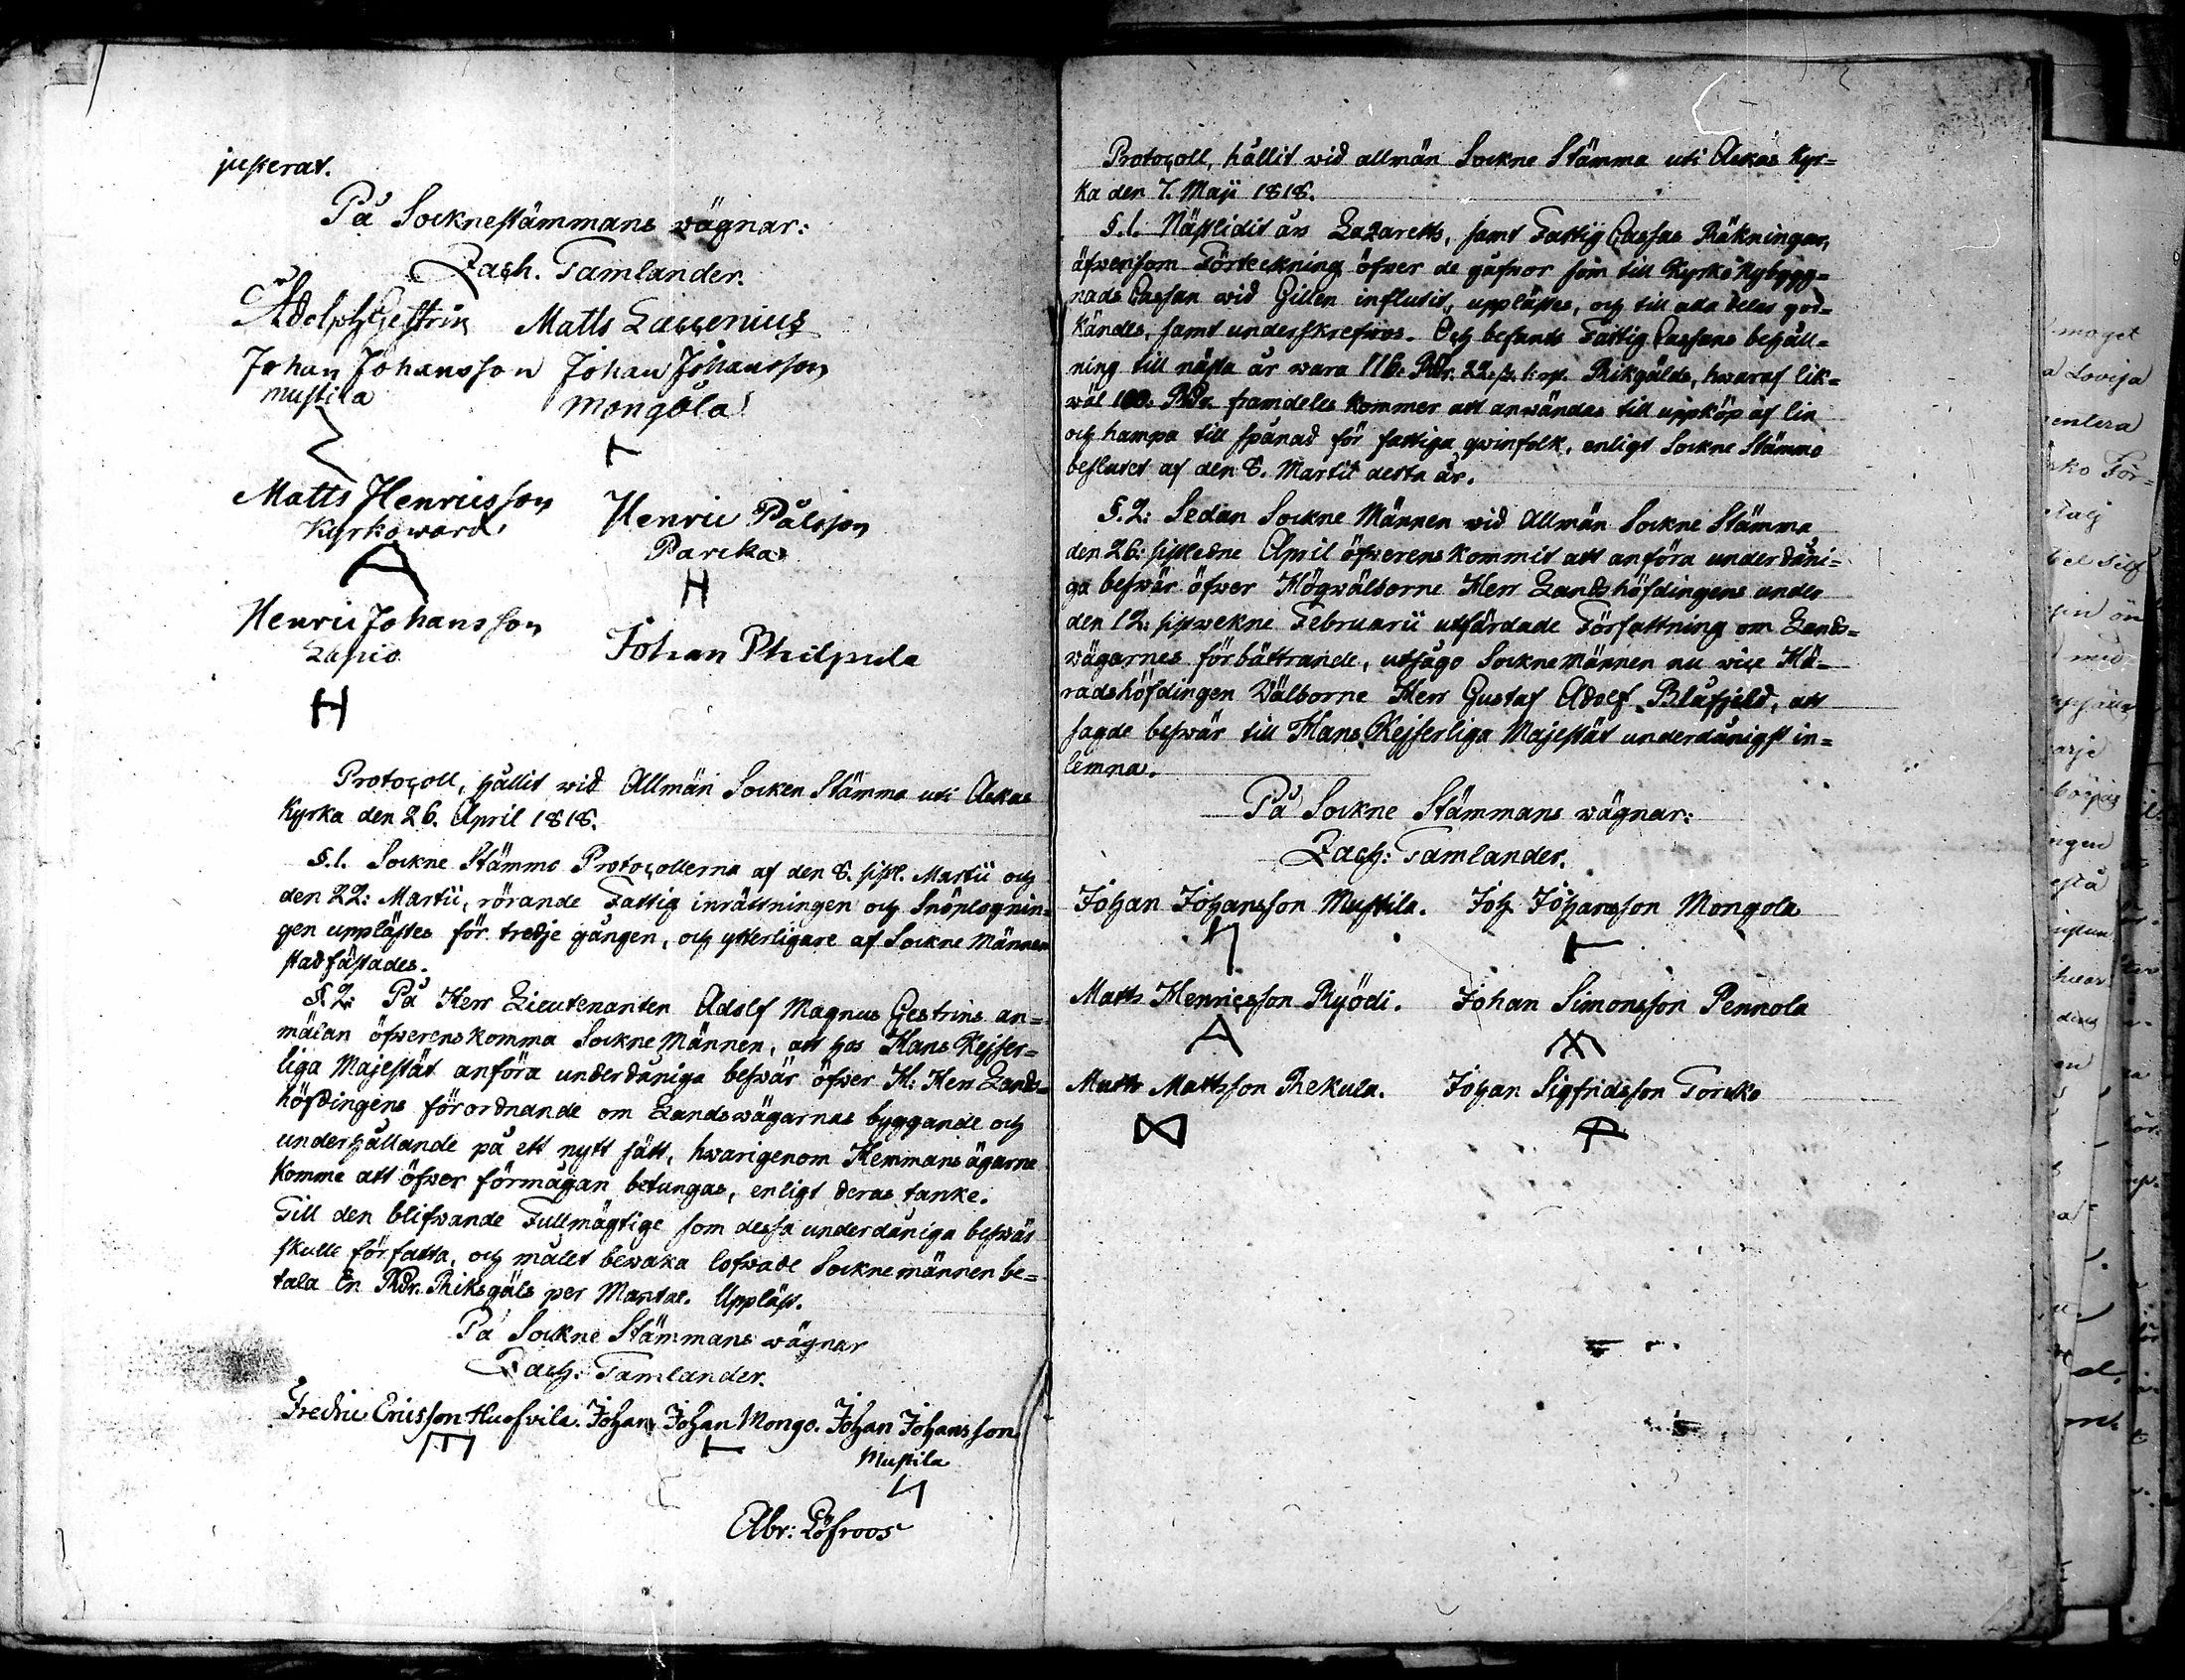 justerat.
På Socknestämmans wägnar:
Zach. Tamlander.
Adolph Gestrin Matts Laggenius
Johan Johansson Johan Johansson
Mustila Mongola
Matts Henricsson Henric Pålsson
Kyrkoward Parcka
Henric Johansson Johan Philpula
Lapio
H
Protocoll, hållit wid Allmän Socken Stämma uti Askas
Kyrka den 26. April 1818.
§.1. Sockne Stämmo Protocollerna af den 8. sistl. Martii och
den 22: Martii, rörande Fattig inrättningen och Snöplognin=
gen upplästes för tredje gången, och ytterligare af Sockne Männen
stadfästades.
§.2: På Herr Lieutenanten Adolf Magnus Gestrins an=
mälan öfwerenskomma Sockne Männen, att hos Hans Kejser=
liga Majestät anföra underdåniga beswär öfwer H: Herr Lands=
höfdingens förordnande om Landswägarnas byggande och
underhållande på ett nytt sätt, hwarigenom Hemmans ägarne
komme att öfwer förmågan betungas, enligt deras tanke.
Till den blifwande Fullmägtige som dessa underdåniga beswär
skulle författa, och målet bewaka lofwade Sockne männen be=
tala En Rdr. Riksgäls per Mantal. Uppläst.
På Sockne Stämmans wägnar
Zach: Tamlander.
Fredric Ericsson Huofvila. Johan Johan Mongo. Johan Johansson
Mustila
Abr: Löfroos
Protocoll, hållit wid allmän Sockne Stämma uti Askas Kyr=
ka den 7. Maji 1818.
§.1. Nästlidit års Lazaretts, samt Fattig Cassas Räkningar,
äfwensom Förteckning öfwer de gåfwor som till Kyrko Nybygg=
nads Cassan wid Gillen influtit, upplästes, och till alla delar god=
kändes, samt underskrefwos. Och befants Fattig Cassans behåll=
ning till nästa år wara 116. Rdr. 22. sk. 1. rst. Rikgälds, hwaraf lik=
wäl 100. Rdr. framdeles kommer att anwändas till uppköp af lin
och hampa till spånad för fattiga qwinfolk, enligt Sockne Stämmo
beslutet af den 8. Martii detta år.
§.2: Sedan Sockne Männen wid Allmän Sockne Stämma
den 26: sistledne April öfwerenskommit att anföra underdåni=
ga beswär öfwer Högwälborne Herr Landshöfdingens under
den 12: sistwekne Februarii utfärdade Författning om Lands=
wägarnes förbättrande, utsågo Sockne Männen nu wice Hä=
radshöfdingen Wälborne Herr Gustaf Adolf Blåfjeld, att
sagde beswär till Hans Kejserliga Majestät underdånigst in=
lemna.
På Sockne Stämmans wägnar:
Zach: Tamlander.
Johan Johansson Mustila. Joh Johansson Mongola
Matts Henricsson Ryödi. Johan Simonsson Pennola
Matts Mattsson Rekula. Johan Sigfridsson Torcko